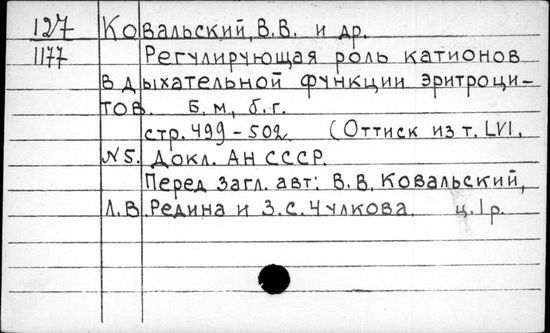 127 Ковальский, В.В. и др.
1177 Регулирующая роль катионов
в дыхательной функции эритроци-
тов. Б.м., б.г.
стр. 499-502 (Оттиск из т. LVI,
N5. Докл. АН СССР.
Перед загл. авт: В.В. Ковальский,
Л.В. Редина и З.С. Чулкова. ц. 1 р.